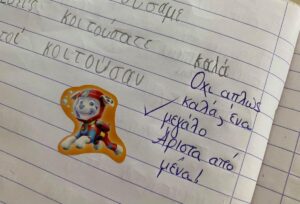 κοιτούσαμε
κοιτούσατε
κοιτούσαν
καλά
Όχι απλώς
καλά, ένα
μεγάλο
Άριστα από
μένα!